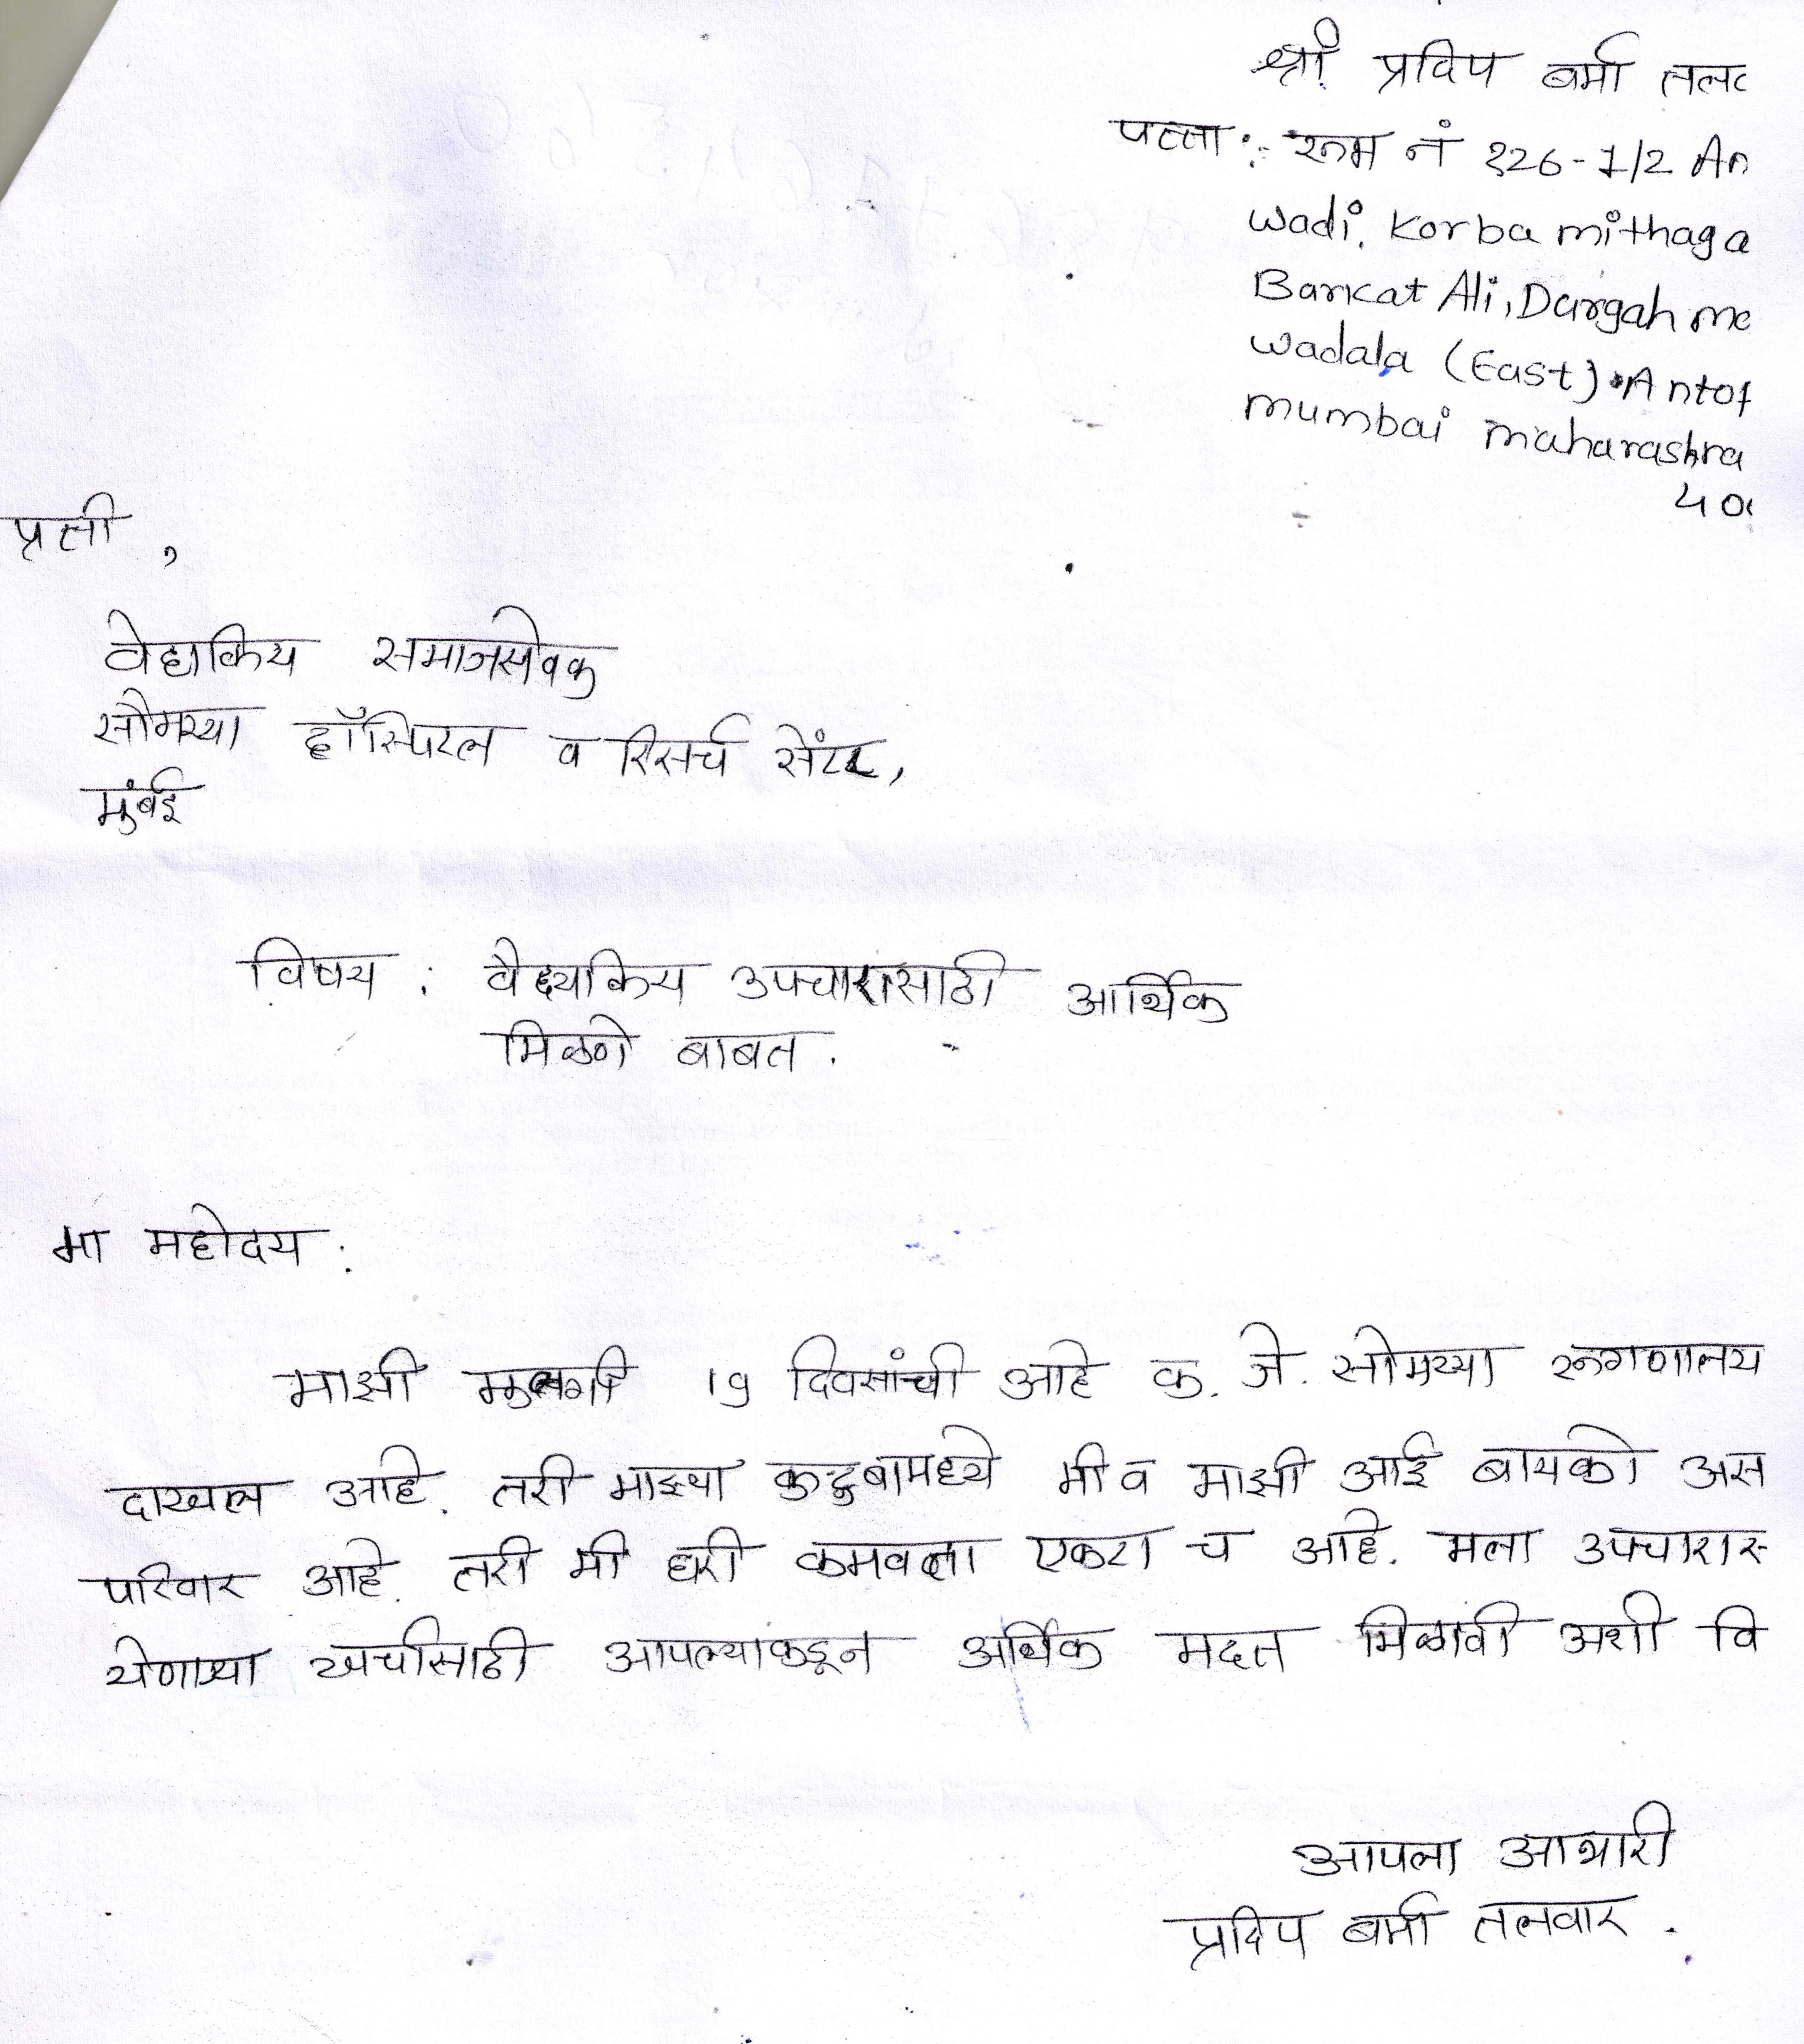 श्री प्रदिप बर्मा तलव
पत्ता :- रूम नं 226-1/2 An
wadi. Korba mithaga
Barkat Ali, Dargah
wadala (East) Antof
mumbai maharashra
400
प्रती ,
वेद्यकिय समाजसेवक
सोमय्या हॉस्पिटल व रिसर्च सेंटर,
मुंबई
विषय : वैद्यकिय उपचारासाठी आर्थिक
मिळणे बाबत .
मा महोदय :
माझी मुलगी 19 दिवसांची आहे क. जे. सोमय्या रूगणालय
दाखल आहे. तरी माझ्या कुटुबामध्ये मी व माझी आई बायको अस
परिवार आहे. तरी मी घरी कमवता एकटा च आहे. मला उपचारास
येणाऱ्या खर्चासाठी आपल्याकडून अर्थिक मदत मिळावी अशी वि
आपला आभारी
प्रदिप बर्मा तलवार .